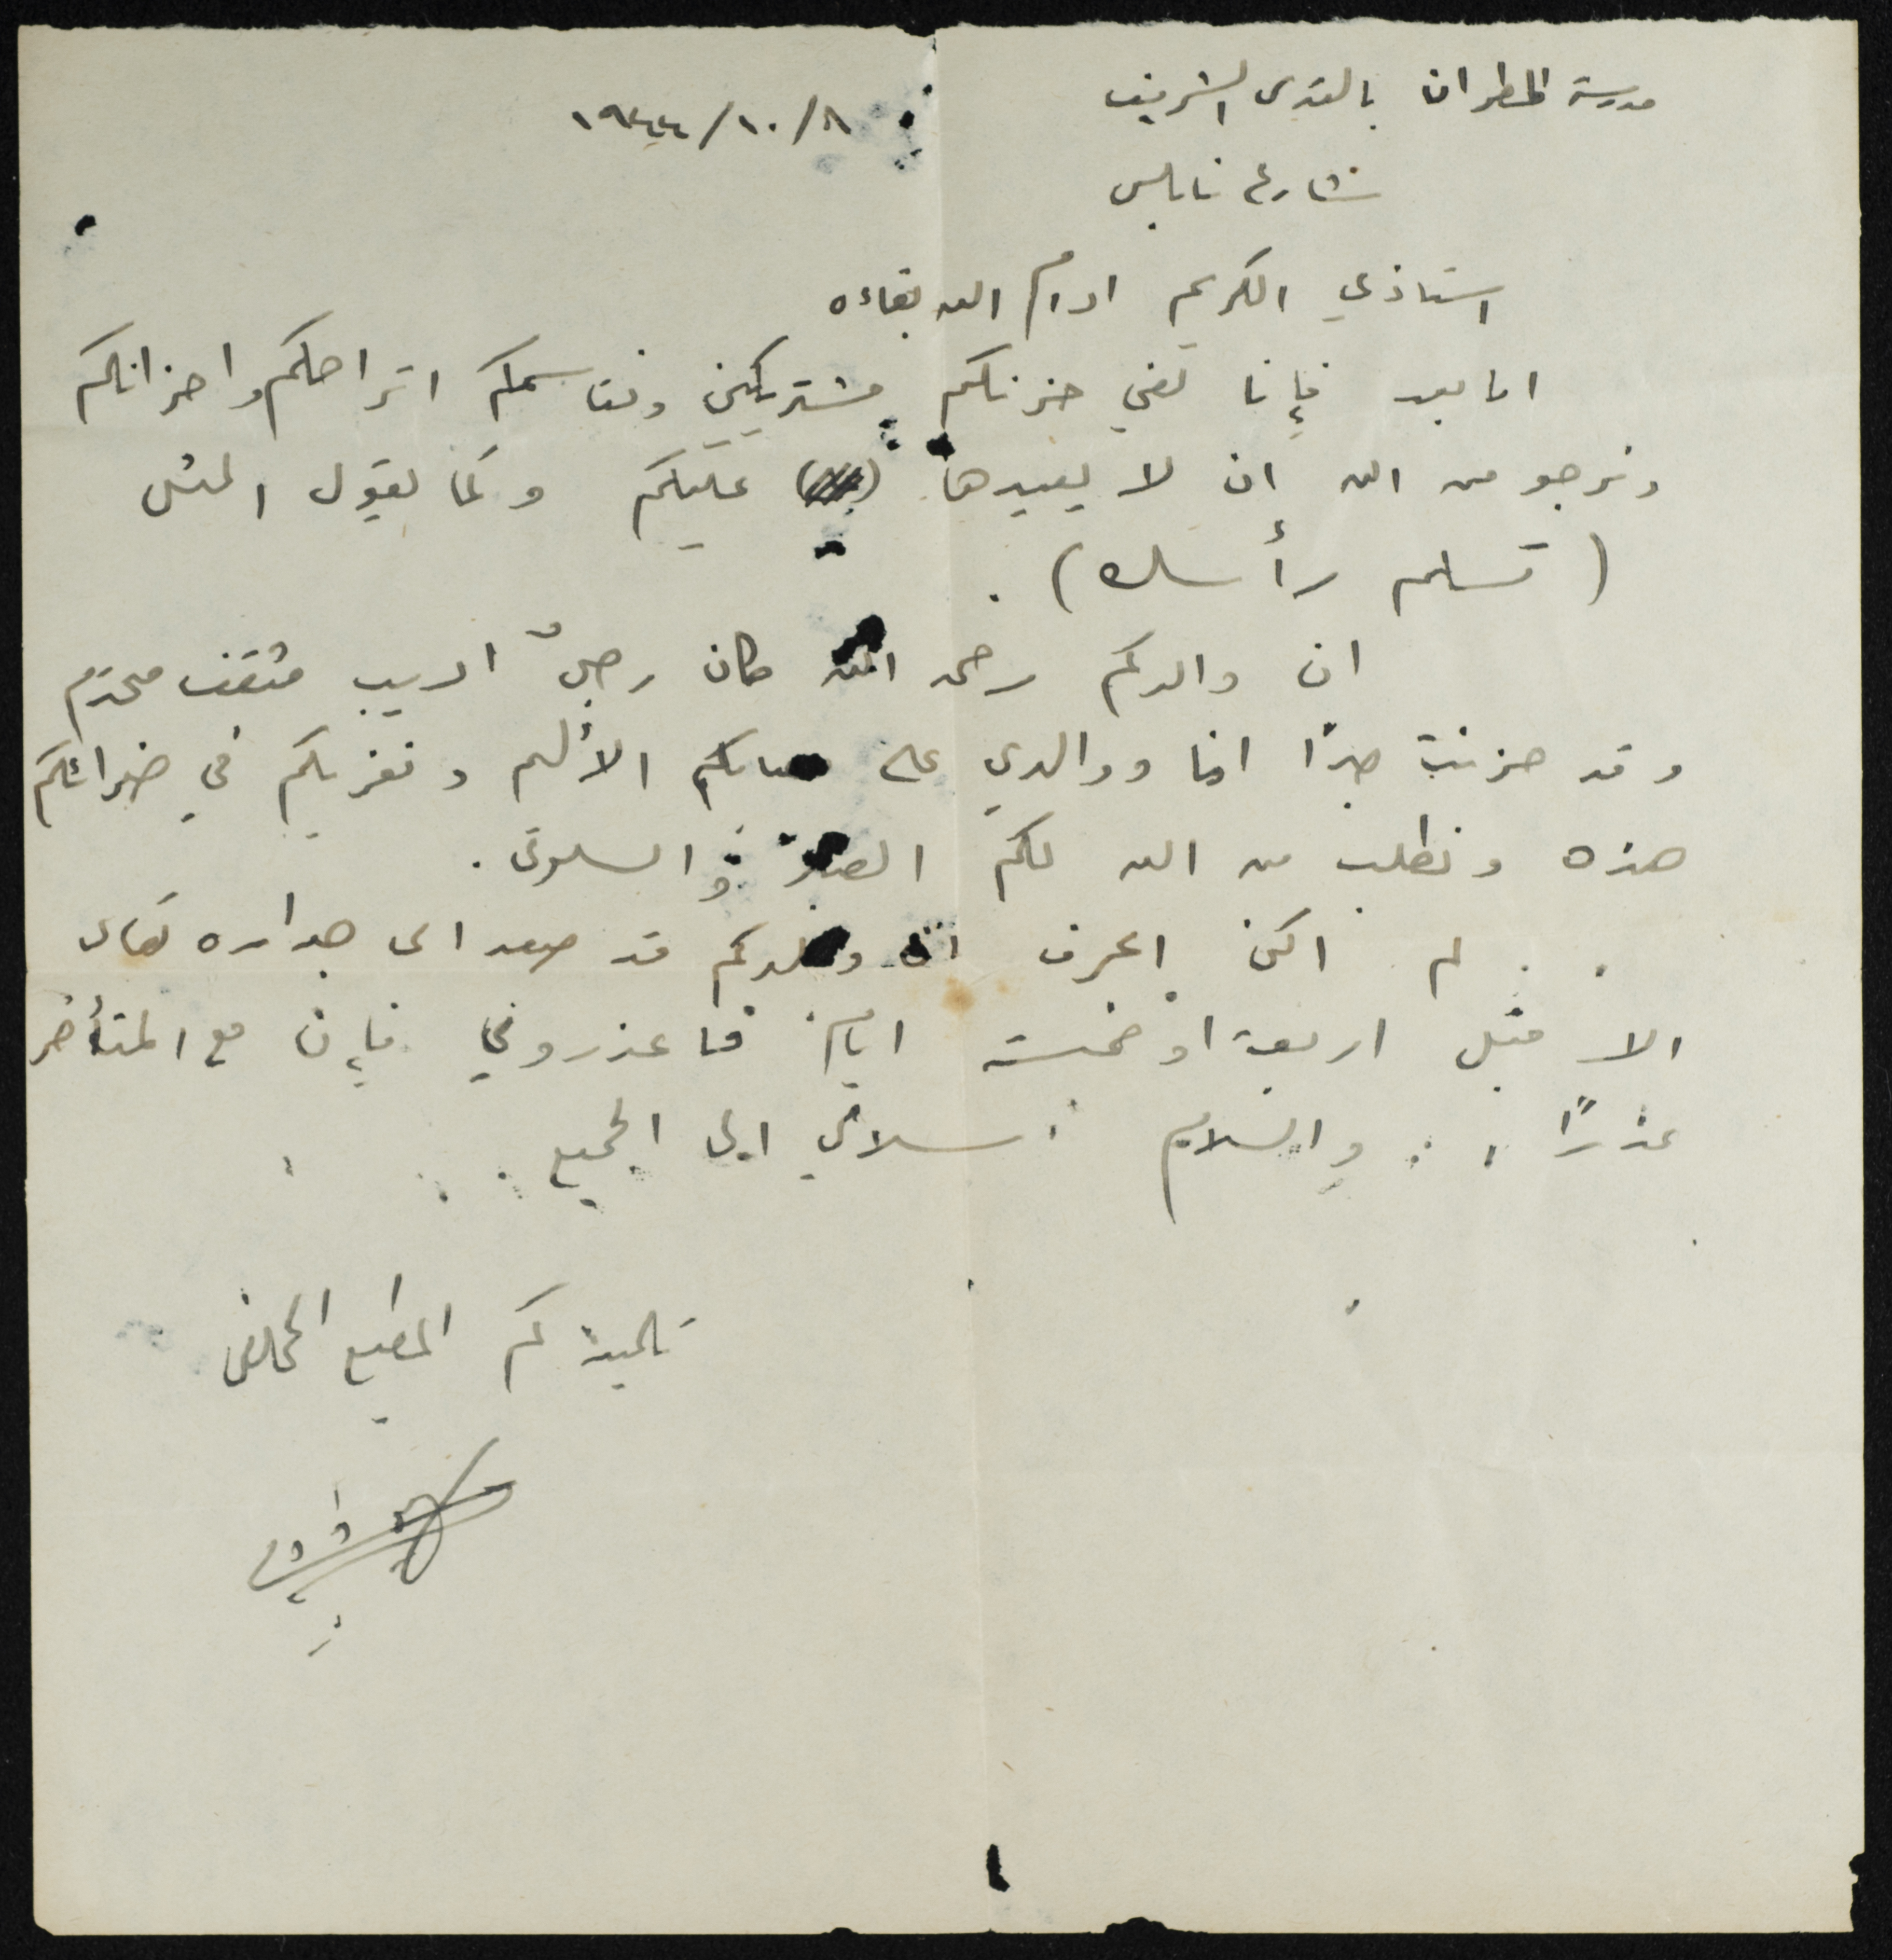 مدرسة المطران بالقدس الشريف
٨/١٠/١٩٤٤
شارع نابلس
استاذي الكريم ادام الله بقاءه
اما بعد فإنا لفي حزنكم مشتركين ونقاسمكم اتراحكم واحزانكم
ونرجو من الله ان لا يعيدها عليكم وكما يقول المثل
(تسلم رأسك).
ان والدكم رحمه الله كان رجلٌ اديب مثقف محترم
وقد حزنت جدًا انا ووالدي على الأليم ونعزيكم في ضرائكم
هذه ونطلب من الله لكم الصبر والسلوى.
لم اكن اعرف ان والدكم قد صعد الى جداره تعالى
الا قبل اربعة او خمسة ايام فاعذروني فإن مع المتأخر
عذرًا والسلام سلامي الى الجميع
تلميذكم المطيع المخلص